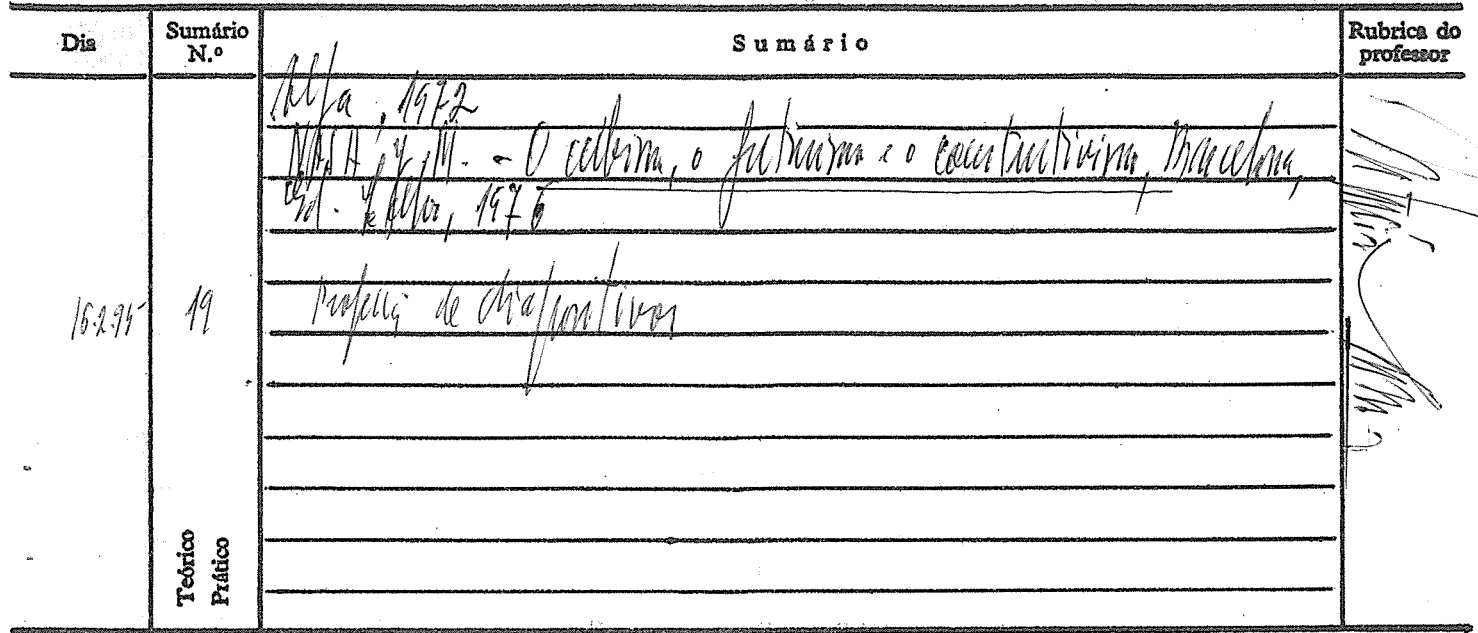 Dia
Sumário N.º
Sumário
Rubrica do professor
Alfa, 1972
NASH, J. M. - O cubismo, o futurismo e o construtivismo, Barcelona,
Ed. Labor, 1975
16.2.95 19 Projecção de diapositivos
Teórico
Prático